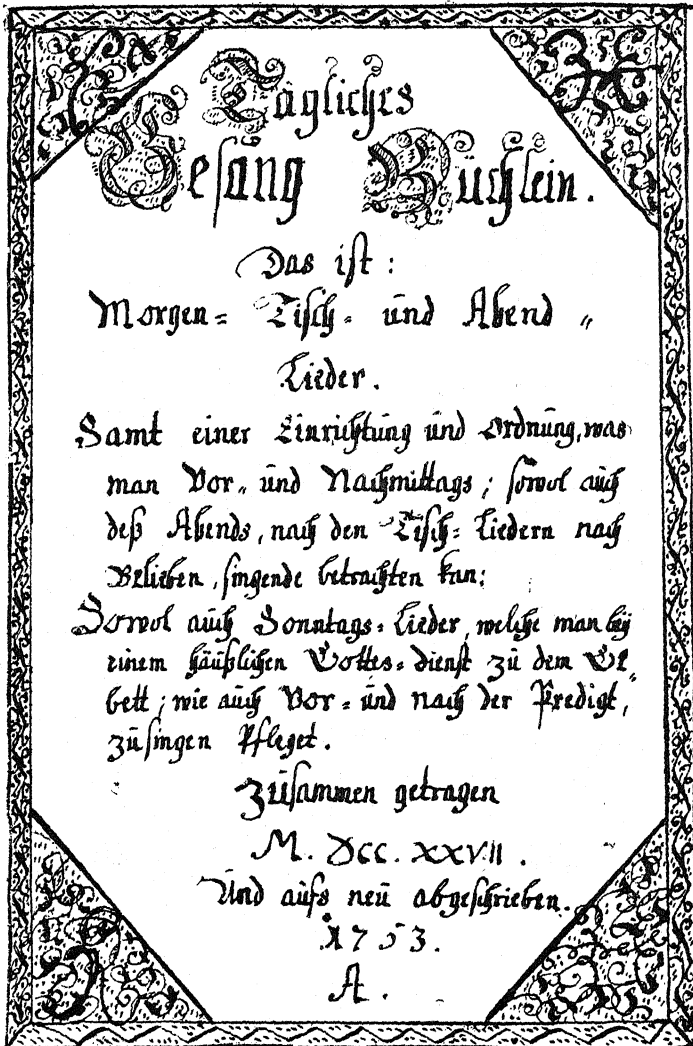 Tägliches
Gesang Büchlein.
Das ist:
Morgen= Tisch= und Abend„
Lieder.
Samt einer Einrichtung und Ordnung, was
man Vor„ und Nachmittags; sowol auch
deß Abends, nach den Tisch=Liedern nach
Belieben, singende betrachten kan;
Sowol auch Sonntags=Lieder, welche man bey
einem häußlichen Gottes=dienst zu dem Ge„
bett; wie auch Vor= und nach der Predigt,
zusingen Pfleget.
Zusammen getragen
M. DCC. XXVII.
Und aufs neu abgeschrieben.
1753.
A.